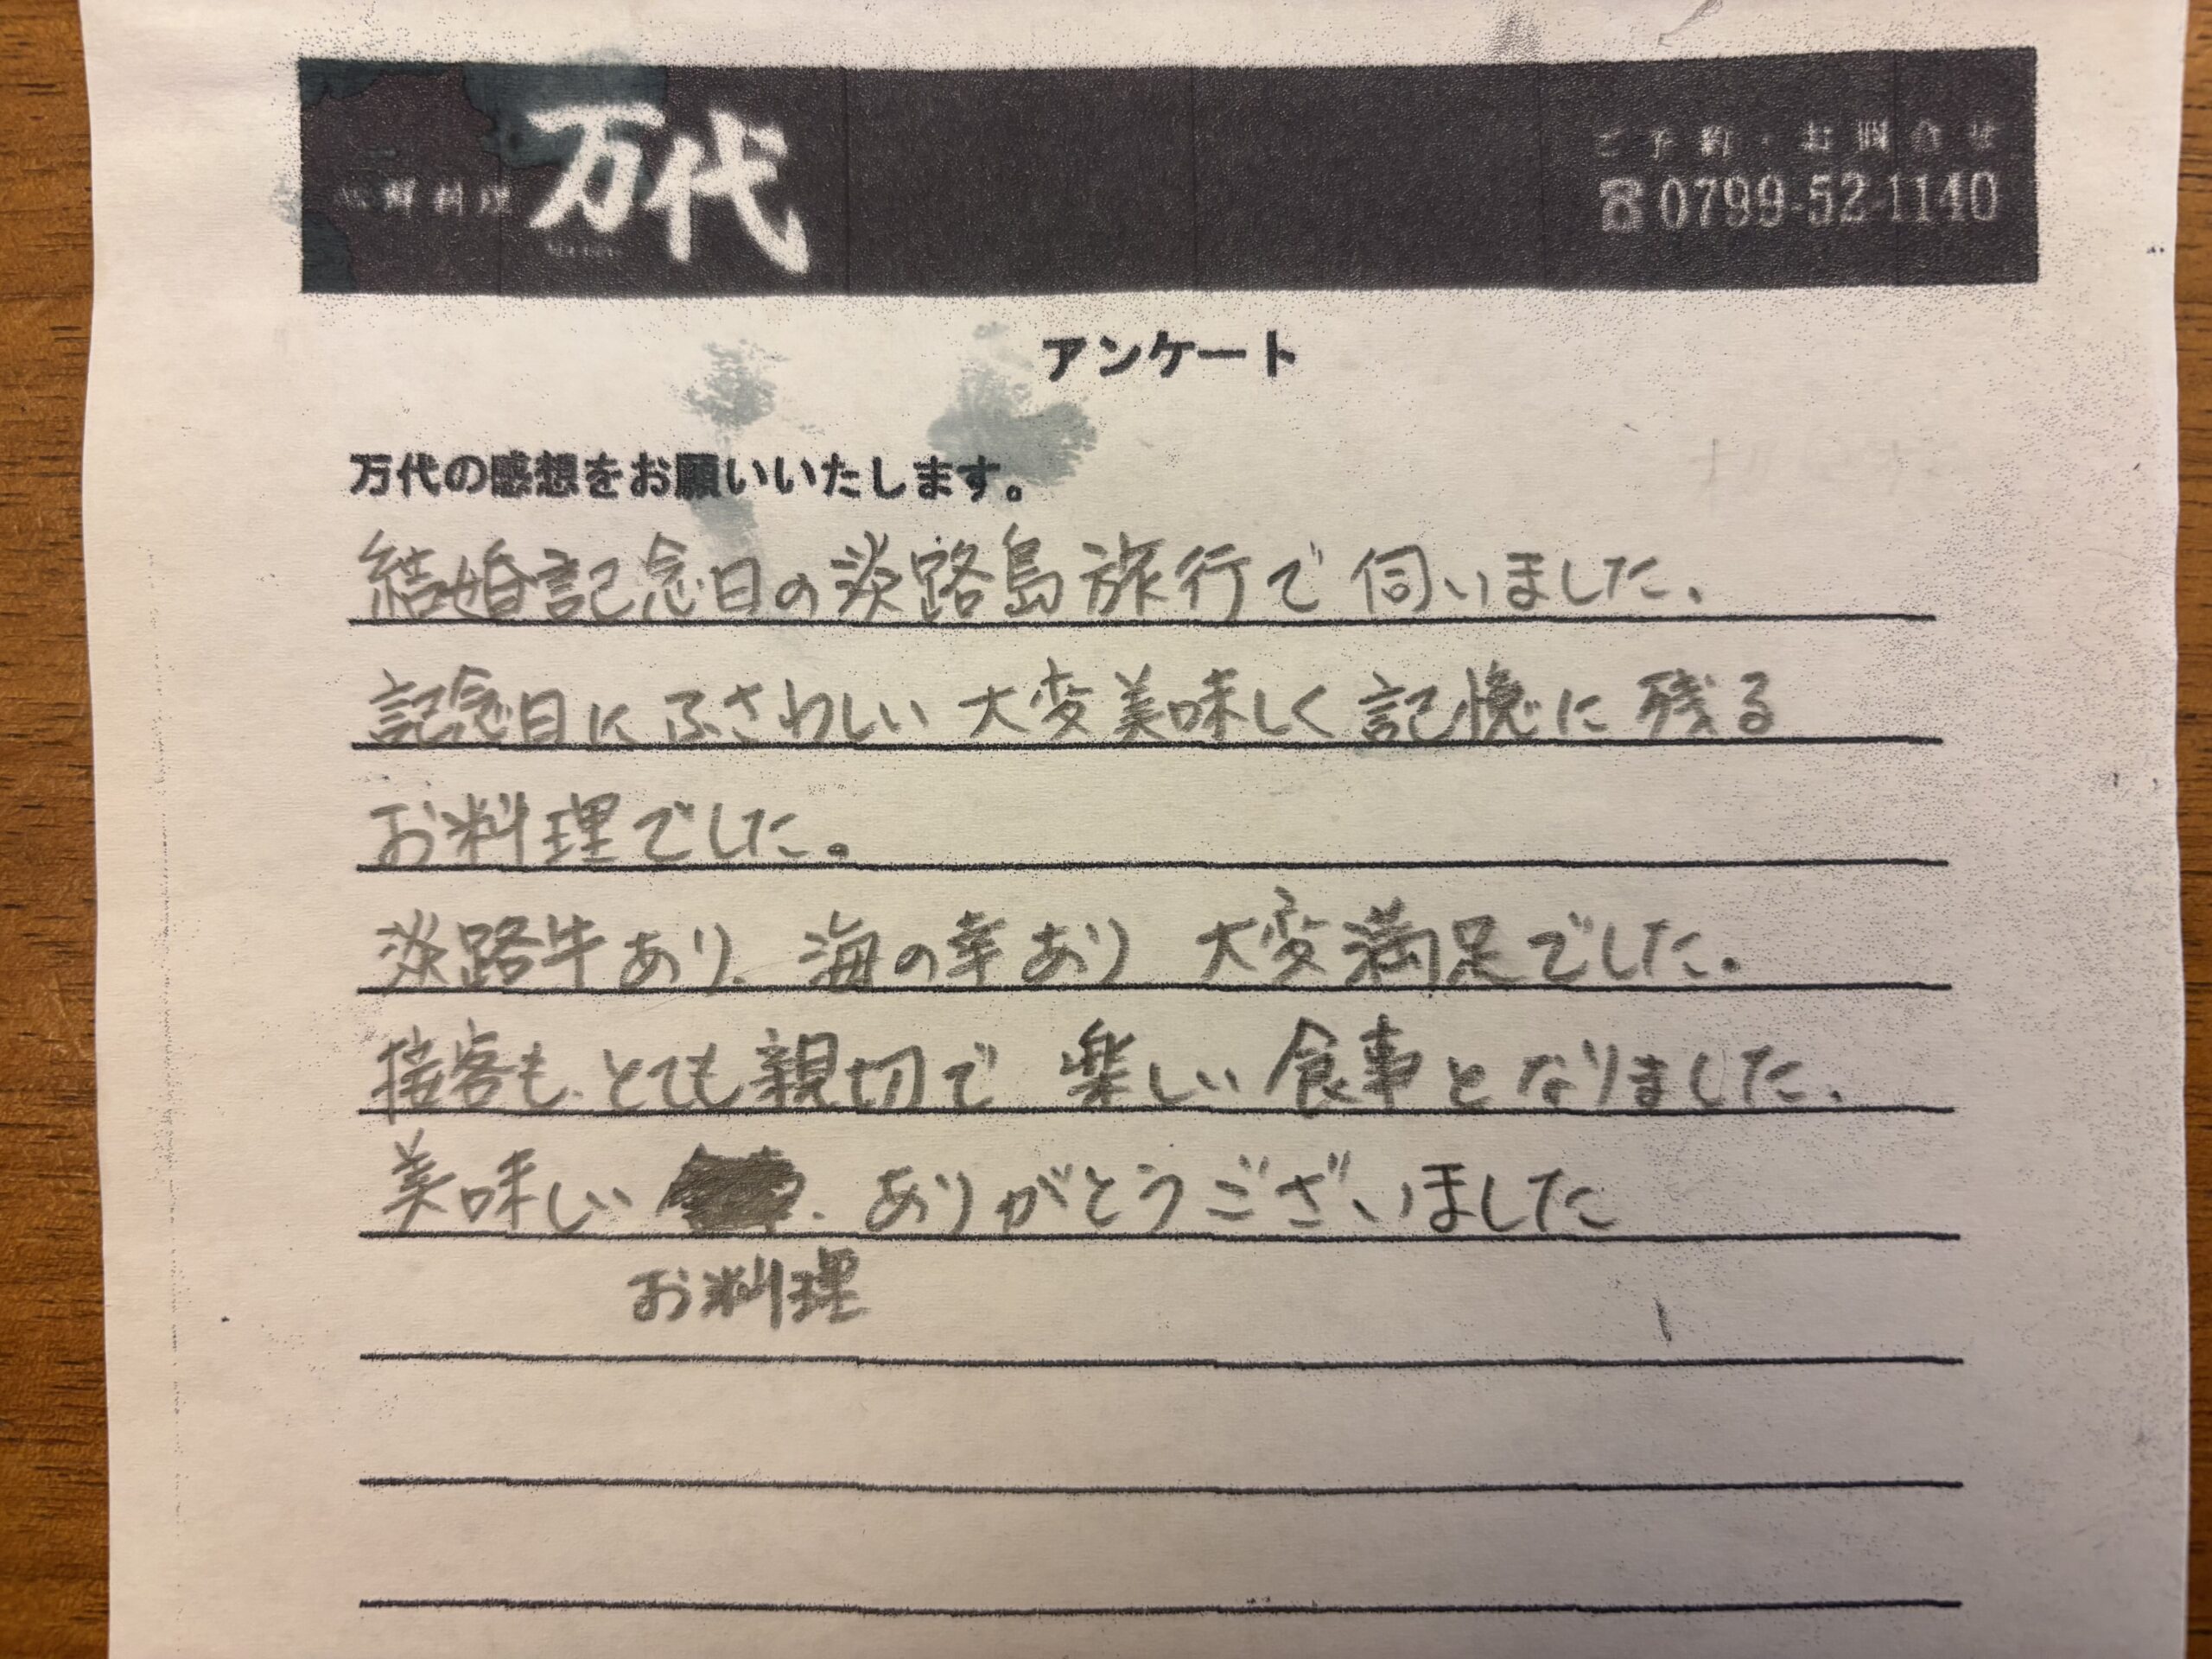 鮮料理 万代
ご予約・お問合せ
☎0799-52-1140
アンケート
万代の感想をお願いいたします。
結婚記念日の淡路島旅行で伺いました、
記念日にふさわしい 大変美味しく記憶に残る
お料理でした。
淡路牛あり、海の幸あり 大変満足でした。
接客も、とても親切で 楽しい食事となりました、
美味しい 、ありがとうございました
お料理